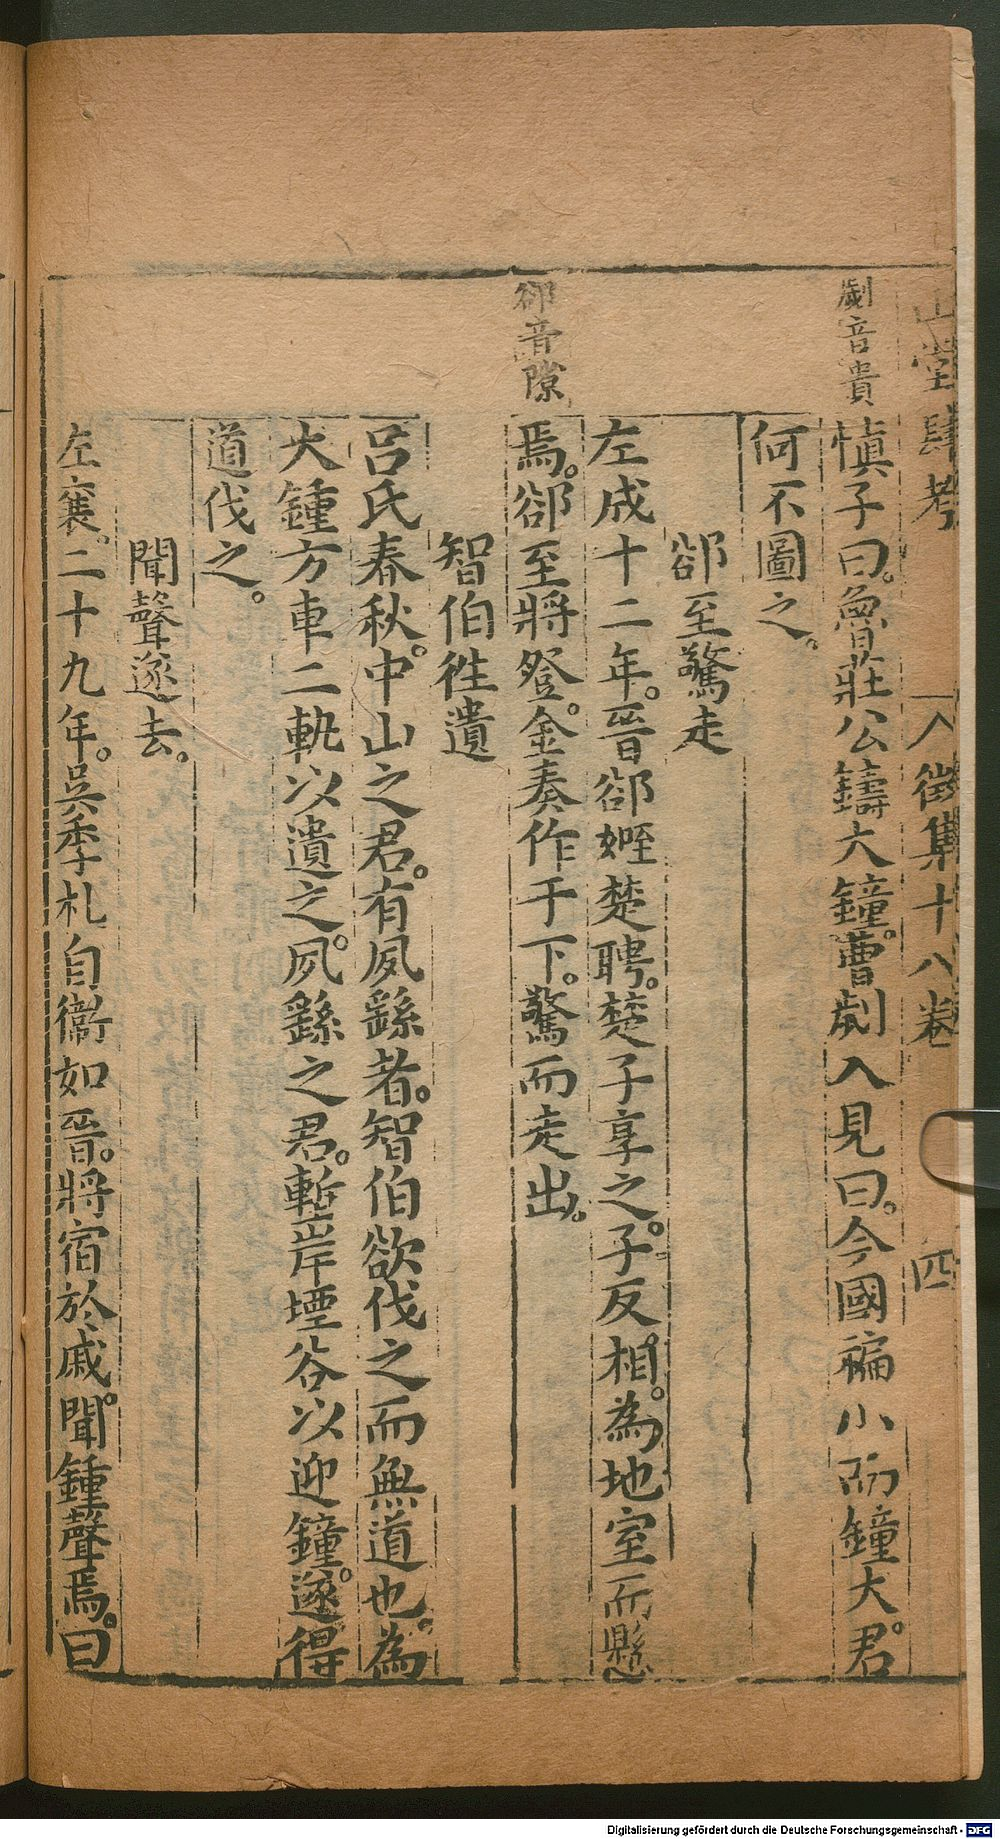 山堂肆考 徵集十八卷 四
劌音貴
慎子曰。魯莊公鑄大鐘。曹劌入見曰。今國褊小而鐘大。君
何不圖之。
郤至驚走
左成十二年。晉郤姪楚聘。楚子享之。子反相。為地室而懸
郤音隙
焉。郤至將登。金奏作于下。驚而走出。
智伯徃遺
呂氏春秋。中山之君。有夙繇者。智伯欲伐之而無道也。為
大鍾方車二軌以遺之。夙繇之君。塹岸堙谷以迎鐘。遂得
道伐之。
聞聲遂去。
左襄。二十九年。吳季札自衞如晉。將宿於戚。聞鍾聲焉。曰
Digitalisierung gefördert durch die Deutsche Forschungsgemeinschaft - DFG